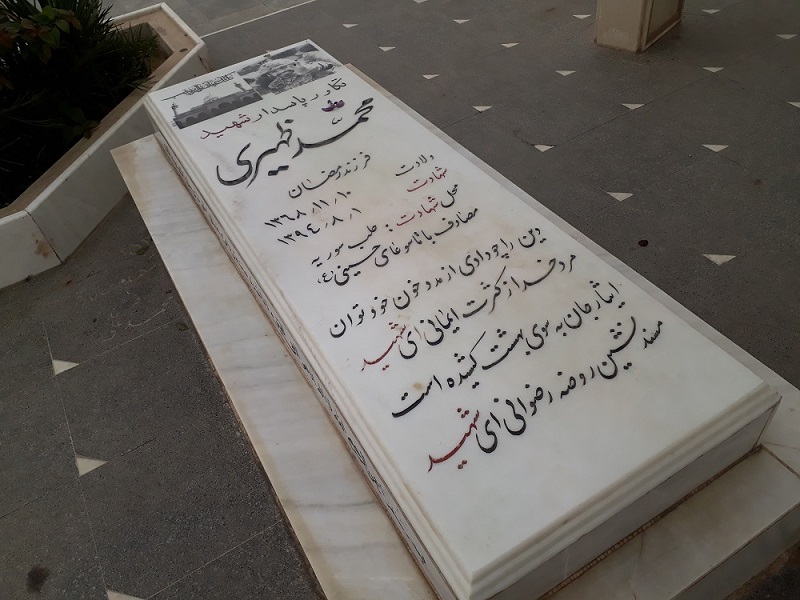 تکاور پاسدار شهید
محمد ظهیری
فرزند رمضان
ولادت ۱۳۶۸/۱۱/۱۰
شهادت ۱۳۹۴/۸/۱
محل شهادت: حلب سوریه
مصادف با تاسوعای حسینی (ع)
دین را چو دادی از مدد خون خود توان
مرد خدا ز کثرت ایمانی ای شهید
ایثار جان به سوی بهشت کشیده است
مسند نشین روضه رضوانی ای شهید